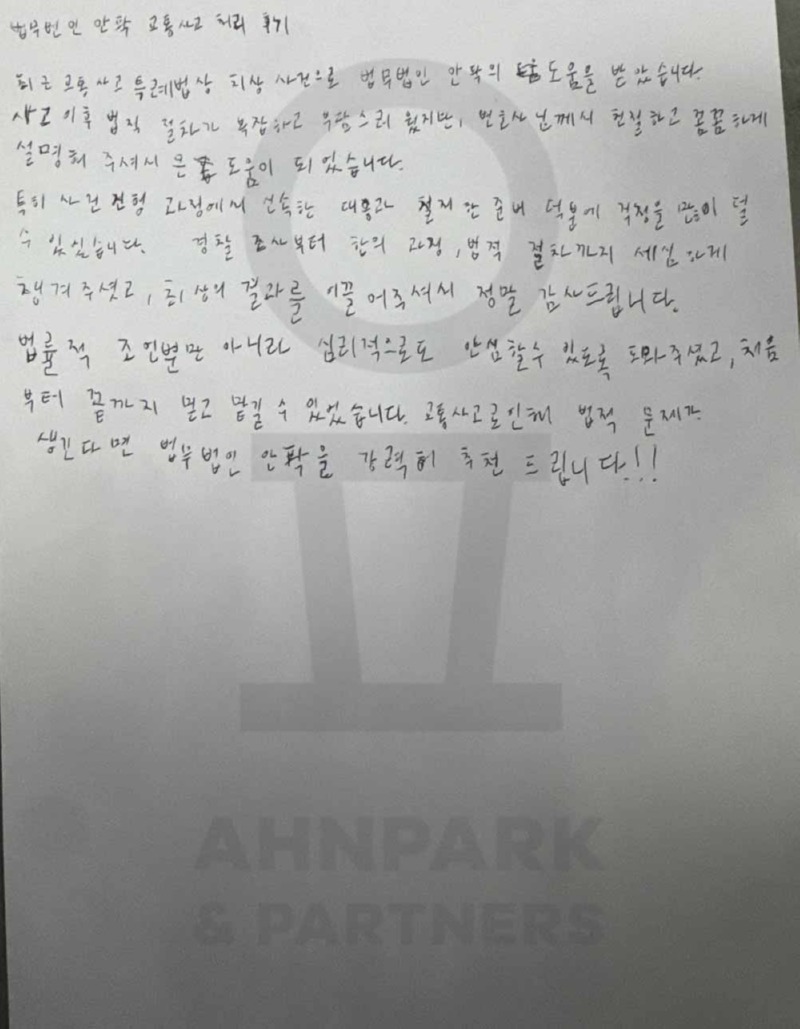 법무법인 안팍 교통사고 처리 후기
최근 교통사고 특례법상 치상 사건으로 법무법인 안팍의 도움을 받았습니다.
사고 이후 법적 절차가 복잡하고 부담스러웠지만, 변호사님께서 친절하고 꼼꼼하게
설명해 주셔서 큰 도움이 되었습니다.
특히 사건 진행 과정에서 신속한 대응과 철저한 준비 덕분에 걱정을 많이 덜
수 있었습니다. 경찰 조사부터 합의 과정, 법적 절차까지 세심하게
챙겨주셨고, 최상의 결과를 이끌어주셔서 정말 감사드립니다.
법률적 조언뿐만 아니라 심리적으로도 안심할수 있도록 도와주셨고, 처음
부터 끝까지 믿고 맡길 수 있었습니다. 교통사고로인해 법적 문제가
생긴다면 법무법인 안팍을 강력히 추천 드립니다!!
AHNPARK
& PARTNERS